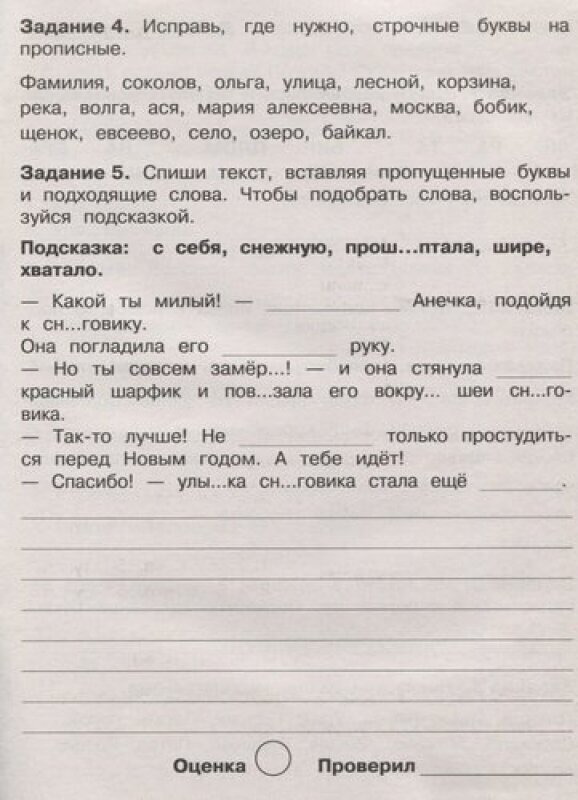 Задание 4. Исправь, где нужно, строчные буквы на
прописные.
Фамилия, соколов, ольга, улица, лесной, корзина,
река, волга, ася, мария алексеевна, москва, бобик,
щенок, евсеево, село, озеро, байкал.
Задание 5. Спиши текст, вставляя пропущенные буквы
и подходящие слова. Чтобы подобрать слова, восполь-
зуйся подсказкой.
Подсказка: с себя, снежную, прош...птала, шире,
хватало.
— Какой ты милый! — ____________ Анечка, подойдя
к сн...говику.
Она погладила его ____________ руку.
— Но ты совсем замёр...! — и она стянула ________
красный шарфик и пов...зала его вокру... шеи сн...го-
вика.
— Так-то лучше! Не ____________ только простудить-
ся перед Новым годом. А тебе идёт!
— Спасибо! — улы...ка сн...говика стала ещё ________.
Оценка Проверил ____________